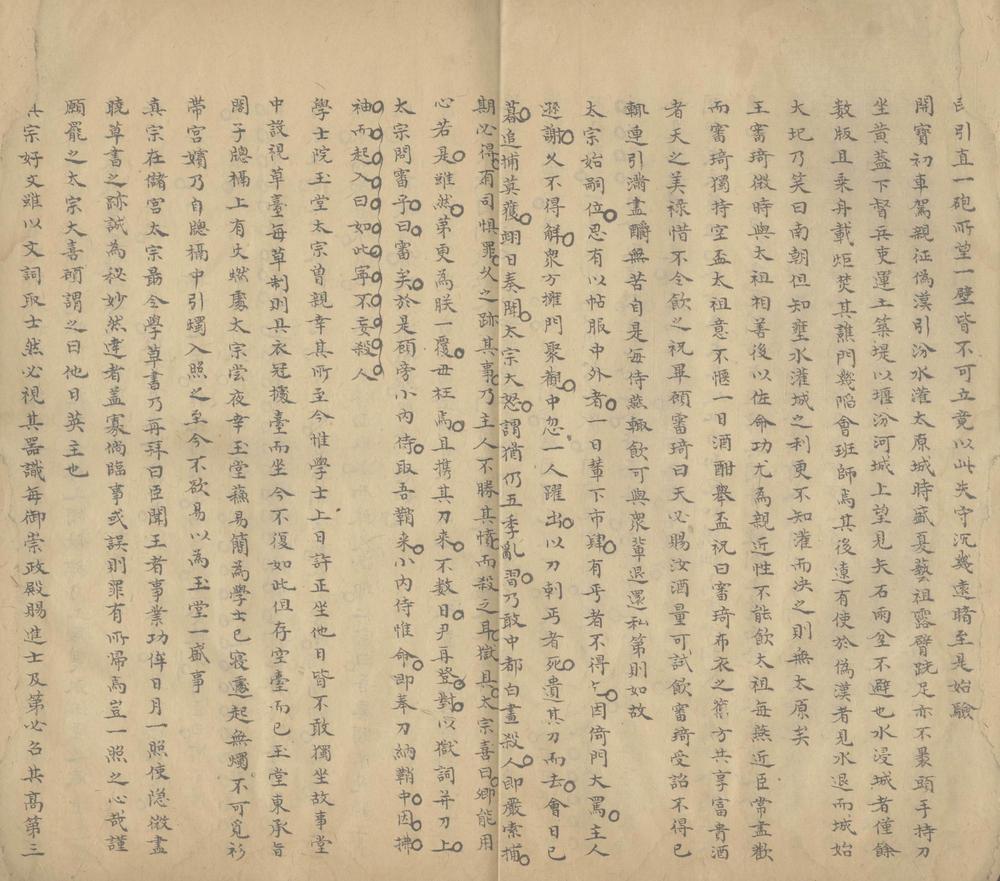 引直一砲所望一壁皆不可立竟以此失守沉幾遠睹至是始驗
開寶初車駕親征偽漢引汾水灌太原城時盛夏藝祖露臂跣足亦不裹頭手持刀
坐黃蓋下督兵吏運土築堤以堰汾河城上望見矢石雨坌不避也水浸城者僅餘
數版且乘舟載炬焚其譙門幾陷會班師焉其後遠有使於偽漢者見水退而城始
大圮乃笑曰南朝但知壅水灌城之利更不知灌而決之則無太原矣
王審琦微時與太祖相善後以佐命功尤為親近性不能飲太祖每燕近臣常盡歡
而審琦獨持空盃太祖意不愜一日酒酣舉盃祝曰審琦布衣之舊方共享富貴酒
者天之美祿惜不令飲之祝畢顧審琦曰天必賜汝酒量可試飲審琦受詔不得已
輒連引滿盡釂無苦自是每侍燕輒飲可與眾輩退還私第則如故
太宗始嗣位思有以帖服中外者一日輦下市肆有丐者不得乞因倚門大罵主人
遜謝久不得解眾方擁門聚觀中忽一人躍出以刀刺丐者死遺其刀而去會日已
暮追捕莫獲翊日奏聞太宗大怒謂猶仍五季亂習乃敢中都白晝殺人即嚴索捕
期必得有司惧罪久之跡其事乃主人不勝其憤而殺之耳獄具太宗喜曰卿能用
心若是雖然第更為朕一覆毋枉焉且携其刀來不數日尹再登對以獄詞并刀上
太宗問審乎曰審矣於是顧旁小內侍取吾鞘來小內侍惟命即奉刀納鞘中因拂
袖而起入曰如此寧不妄殺人
學士院玉堂太宗曾親幸其所至今惟學士上日許正坐他日皆不敢獨坐故事堂
中設視草臺每草制則具衣冠據臺而坐今不復如此但存空臺而已玉堂東承旨
閣子牕槅上有火燃處太宗嘗夜幸玉堂蘓易簡為學士已寢遽起無燭不可覓衫
帶宮嬪乃自牕槅中引燭入照之至今不欲易以為玉堂一盛事
真宗在儲宮太宗最令學草書乃再拜曰臣聞王者事業功侔日月一照使隱微盡
曉草書之跡誠為秘妙然達者蓋寡倘臨事或誤則罪有所歸焉豈一照之心哉謹
願罷之太宗大喜顧謂之曰他日英主也
真宗好文雖以文詞取士然必視其器識每御崇政殿賜進士及第必召其高第三